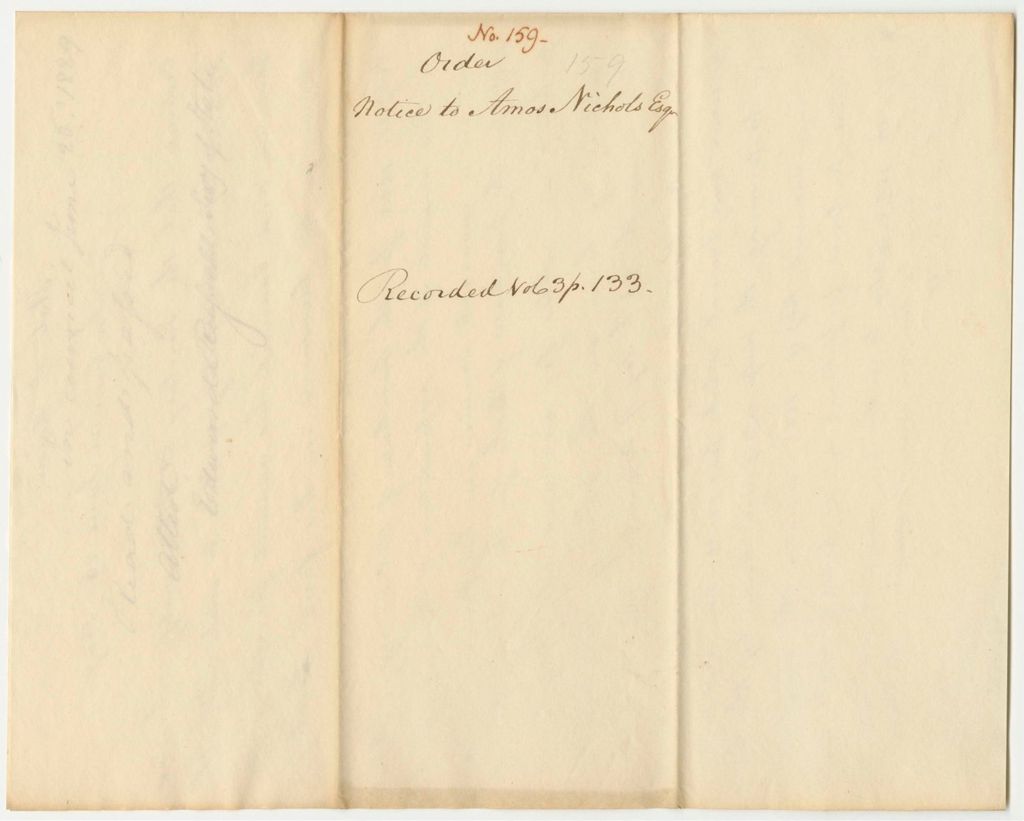 No. 159-
Order
159
Notice to Amos Nichols Esqr
Recorded Vol 3 p. 133.